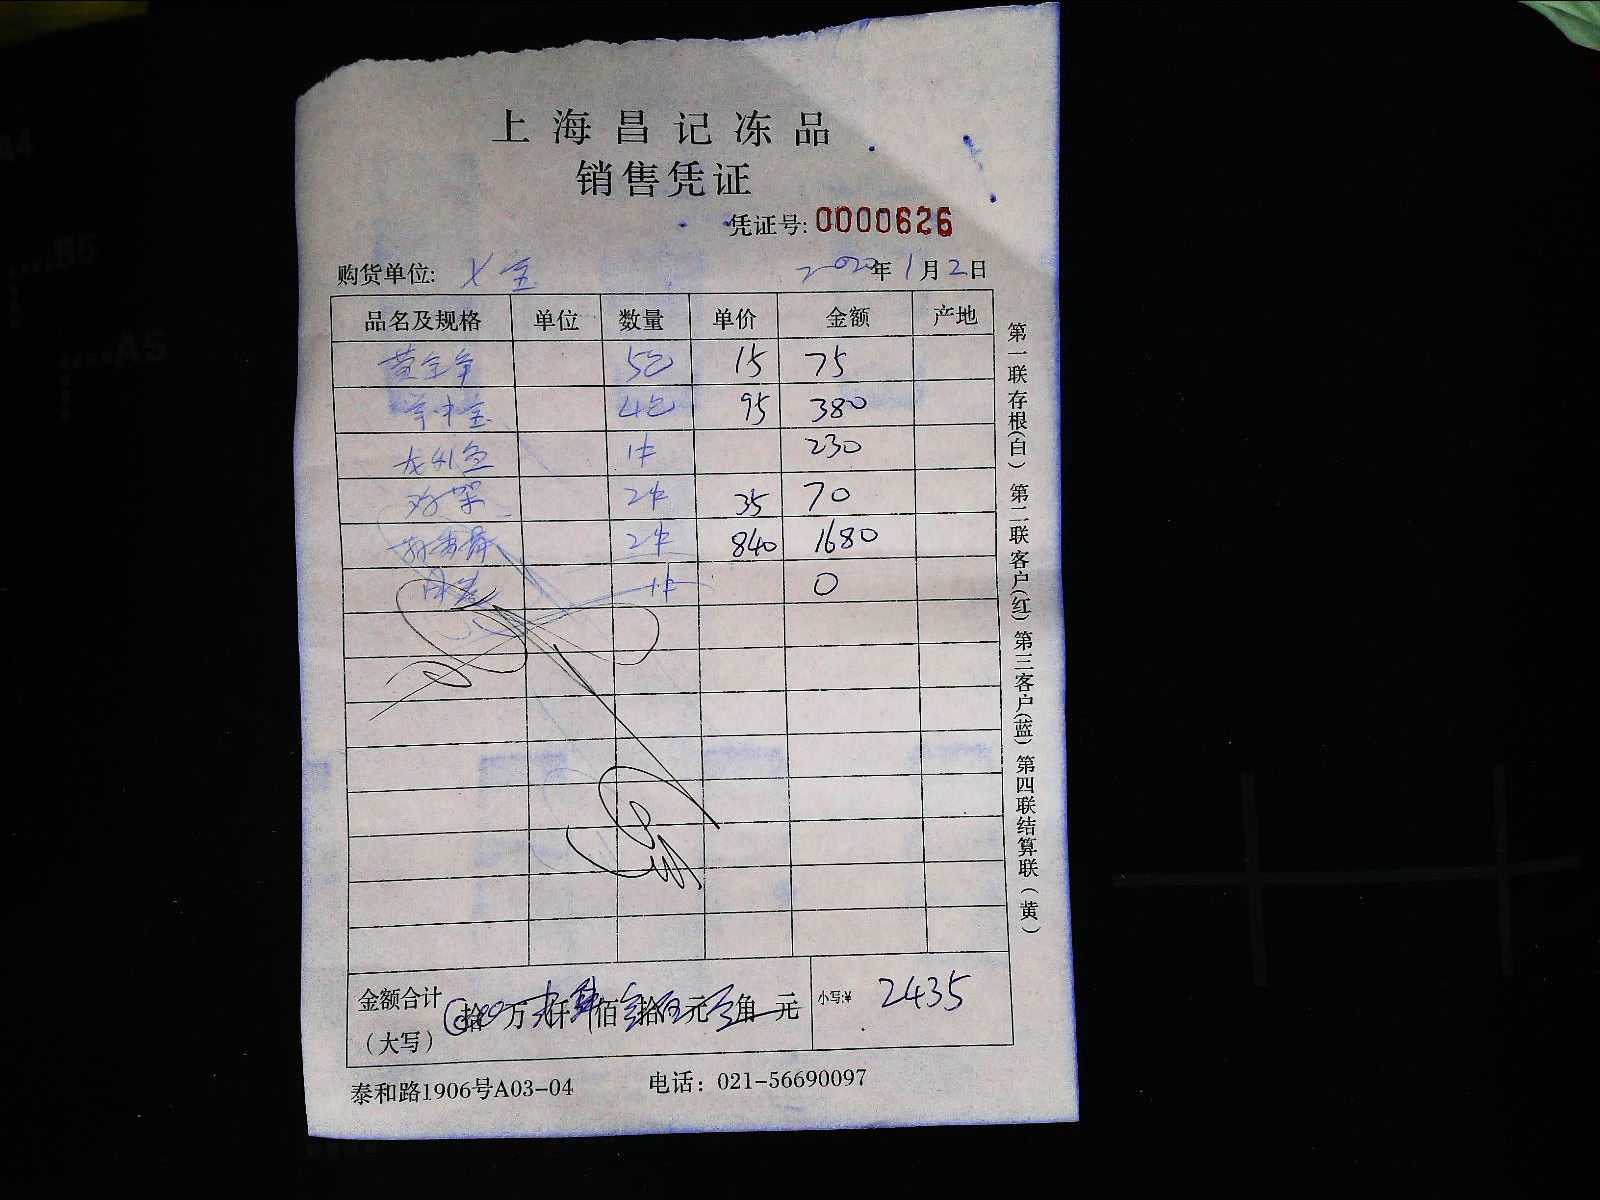 上海昌记冻品
销售凭证
凭证号: 0000626
购货单位: 2020年1月2日
品名及规格 单位 数量 单价 金额 产地
5包 15 75
4包 95 380
龙利鱼 1件 230
鸡架 2件 35 70
2件 840 1680
1件 0
金额合计 拾万 仟 佰 拾 元 角 元 小写:¥ 2435
(大写)
泰和路1906号A03-04 电话: 021-56690097
第一联存根(白) 第二联客户(红) 第三客户(蓝) 第四联结算联(黄)
A4
B5
A5